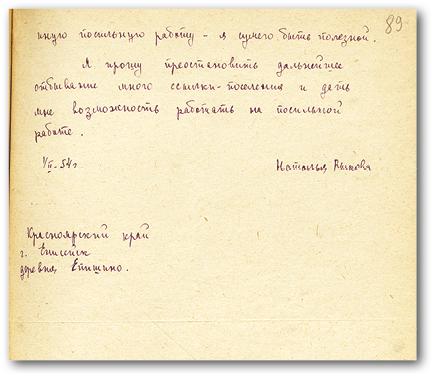 89
иную посильную работу - я сумею быть полезной.
Я прошу приостановить дальнейшее
отбывание мною ссылки-поселения и дать
мне возможность работать на посильной
работе.
1/II-54 г
Наталья Рыкова
Красноярский край
г. Енисейск
деревня Епишино.